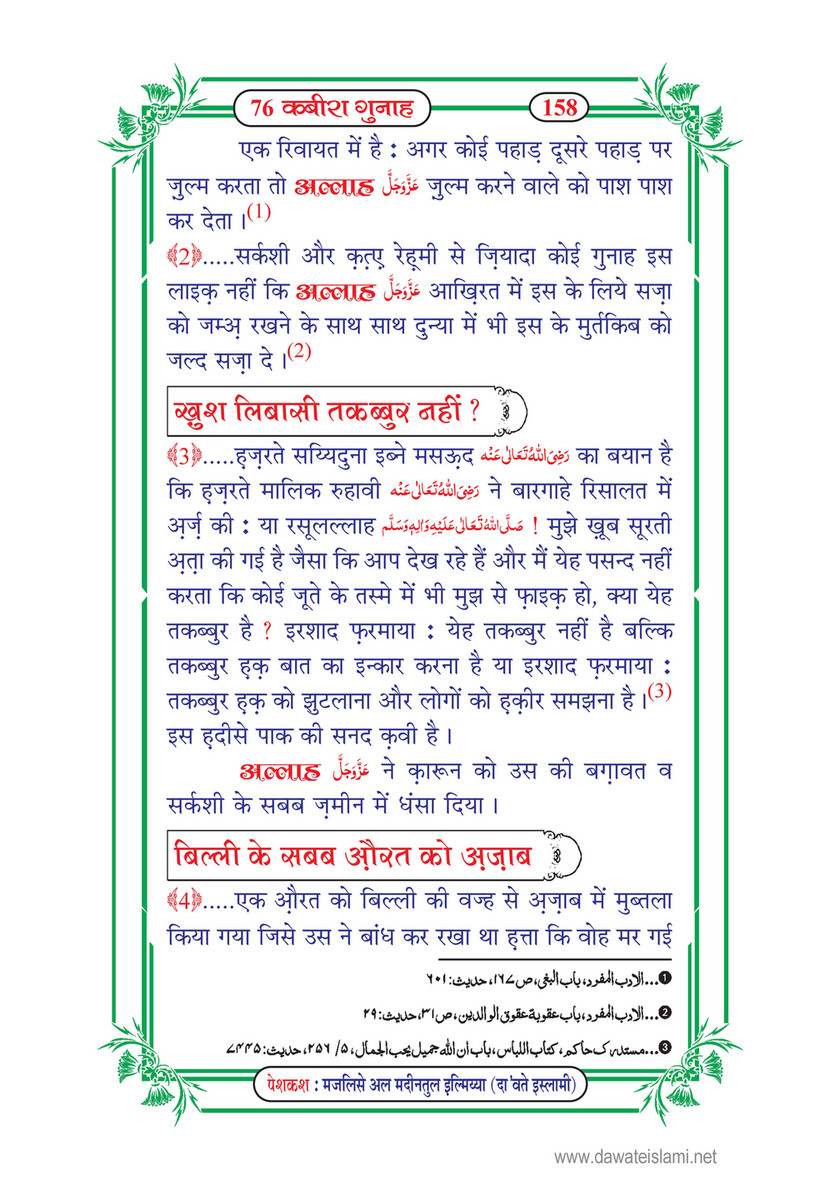 76 कबीरा गुनाह
158
एक रिवायत में है : अगर कोई पहाड़ दूसरे पहाड़ पर
ज़ुल्म करता तो अल्लाह عَزَّوَجَلَّ ज़ुल्म करने वाले को पाश पाश
कर देता ।(1)
﴾2﴿.....सर्कशी और क़त्ए़ रेह़मी से ज़ियादा कोई गुनाह इस
लाइक़ नहीं कि अल्लाह عَزَّوَجَلَّ आख़िरत में इस के लिये सज़ा
को जम्अ़ रखने के साथ साथ दुन्या में भी इस के मुर्तकिब को
जल्द सज़ा दे ।(2)
ख़ुश लिबासी तकब्बुर नहीं ?
﴾3﴿.....ह़ज़रते सय्यिदुना इब्ने मसऊ़द رَضِیَ اللہُ تَعَالٰی عَنْہ का बयान है
कि ह़ज़रते मालिक रुहावी رَضِیَ اللہُ تَعَالٰی عَنْہ ने बारगाहे रिसालत में
अ़र्ज़ की : या रसूलल्लाह صَلَّی اللہُ تَعَالٰی عَلَیْہِ وَاٰلِہٖ وَسَلَّم ! मुझे ख़ूब सूरती
अ़त़ा की गई है जैसा कि आप देख रहे हैं और मैं येह पसन्द नहीं
करता कि कोई जूते के तस्मे में भी मुझ से फ़ाइक़ हो, क्या येह
तकब्बुर है ? इरशाद फ़रमाया : येह तकब्बुर नहीं है बल्कि
तकब्बुर ह़क़ बात का इन्कार करना है या इरशाद फ़रमाया :
तकब्बुर ह़क़ को झुटलाना और लोगों को ह़क़ीर समझना है ।(3)
इस ह़दीसे पाक की सनद क़वी है ।
अल्लाह عَزَّوَجَلَّ ने क़ारून को उस की बग़ावत व
सर्कशी के सबब ज़मीन में धंसा दिया ।
बिल्ली के सबब औ़रत को अ़ज़ाब
﴾4﴿.....एक औ़रत को बिल्ली की वज्ह से अ़ज़ाब में मुब्तला
किया गया जिसे उस ने बांध कर रखा था ह़त्ता कि वोह मर गई
❶...الادب المفرد، باب البغی، ص۱۶۷، حدیث: ۶۰۱
❷...الادب المفرد، باب عقوبة عقوق الوالدین، ص۳۱، حدیث: ۲۹
❸...مستدرک حاکم، کتاب اللباس، باب ان اللہ جمیل یحب الجمال، ۵/ ۲۵۶، حدیث: ۷۴۴۵
पेशकश : मजलिसे अल मदीनतुल इल्मिय्या (दा'वते इस्लामी)
www.dawateislami.net